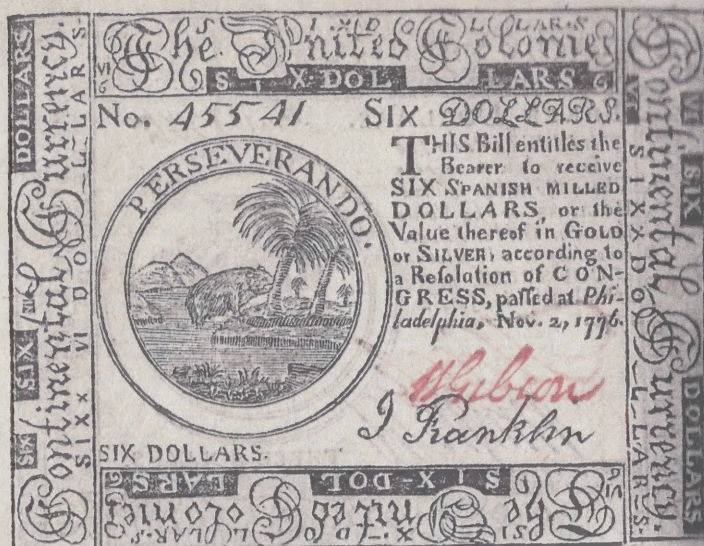 The United Colonies
SIX DOLLARS
SIX DOLLARS
No. 45541 SIX DOLLARS.
PERSEVERANDO.
THIS Bill entitles the
Bearer to receive
SIX SPANISH MILLED
DOLLARS, or the
Value thereof in GOLD
or SILVER, according to
a Resolution of CON-
GRESS, passed at Phi-
ladelphia, Nov. 2, 1776.
J Franklin
SIX DOLLARS.
Continental Currency.
SIX DOLLARS
SIX VI DOLLARS
Continental Currency.
VI SIX DOLLARS
SIXX DOLLARS
SIX-DOLLARS
The United Colonies
SIX DOLLARS